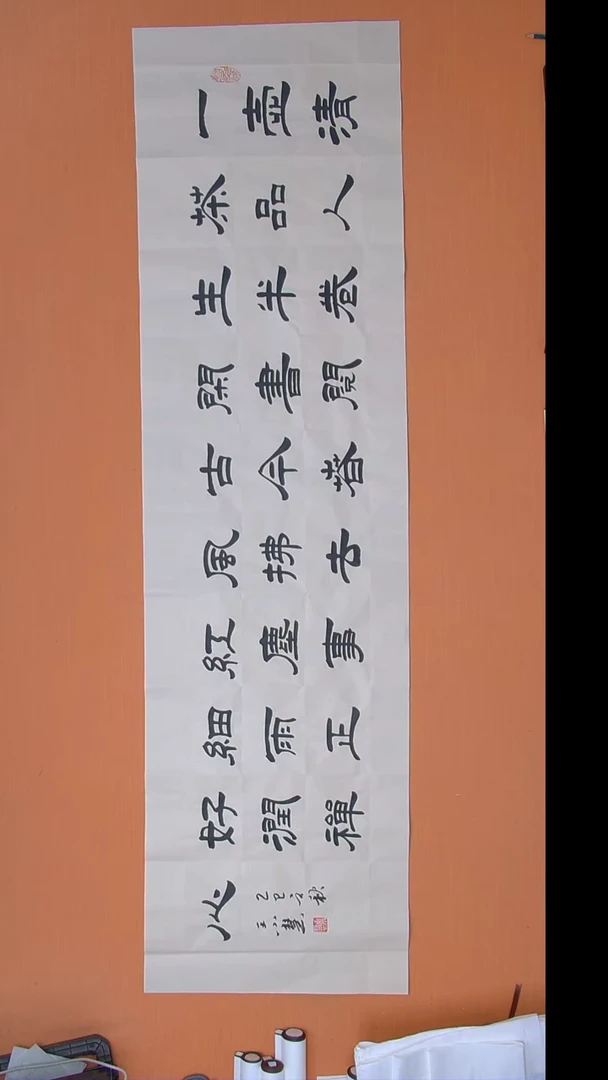 一壺清
茶品人
生半卷
閑書閱
古今春
風拂去
紅塵事
細雨正
好潤禪
心
乙巳之秋
王小慧